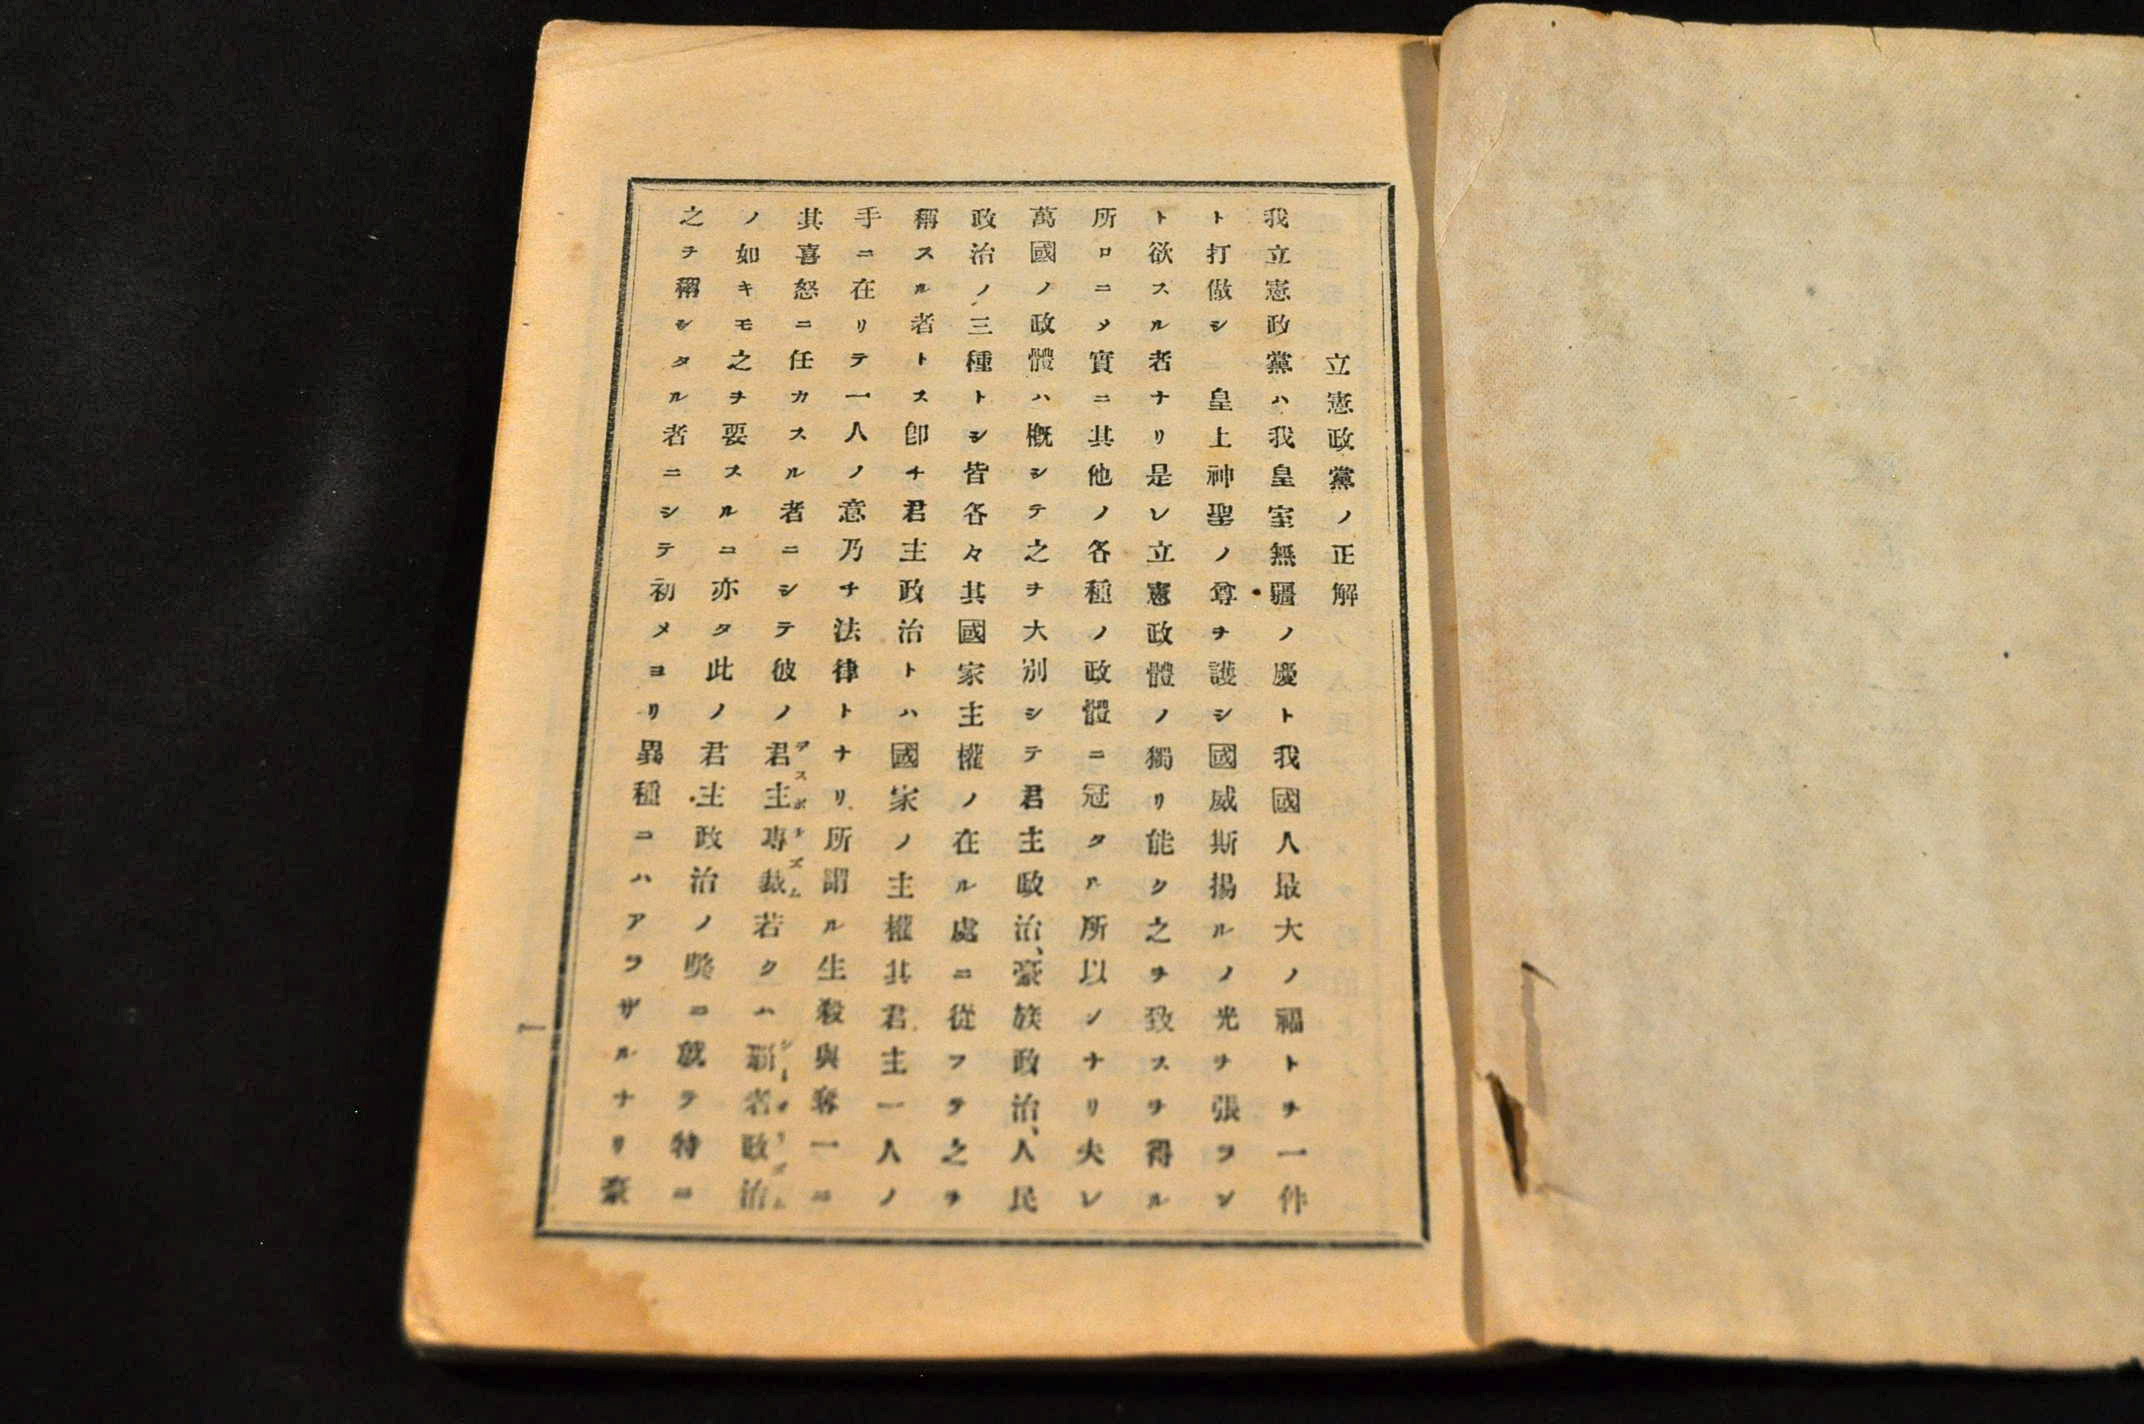 立憲政黨ノ正解
我立憲政黨ハ我皇室無疆ノ慶ト我國人最大ノ福トヲ一件
ト打做シ　皇上神聖ノ尊ヲ護シ國威斯揚ルノ光ヲ張ラン
ト欲スル者ナリ是レ立憲政體ノ獨リ能ク之ヲ致スヲ得ル
所ロニメ實ニ其他ノ各種ノ政體ニ冠タル所以ンナリ夫レ
萬國ノ政體ハ概シテ之ヲ大別シテ君主政治、豪族政治、人民
政治ノ三種トシ皆各々其國家主權ノ在ル處ニ從フテ之ヲ
稱スル者トス卽チ君主政治トハ國家ノ主權其君主一人ノ
手ニ在リテ一人ノ意乃チ法律トナリ所謂ル生殺與奪一ニ
其喜怒ニ任カスル者ニシテ彼ノ君主專裁若クハ覇者政治
ノ如キモ之ヲ要スルニ亦タ此ノ君主政治ノ弊ニ就テ特ニ
之ヲ稱シタル者ニシテ初メヨリ異種ニハアラザルナリ豪